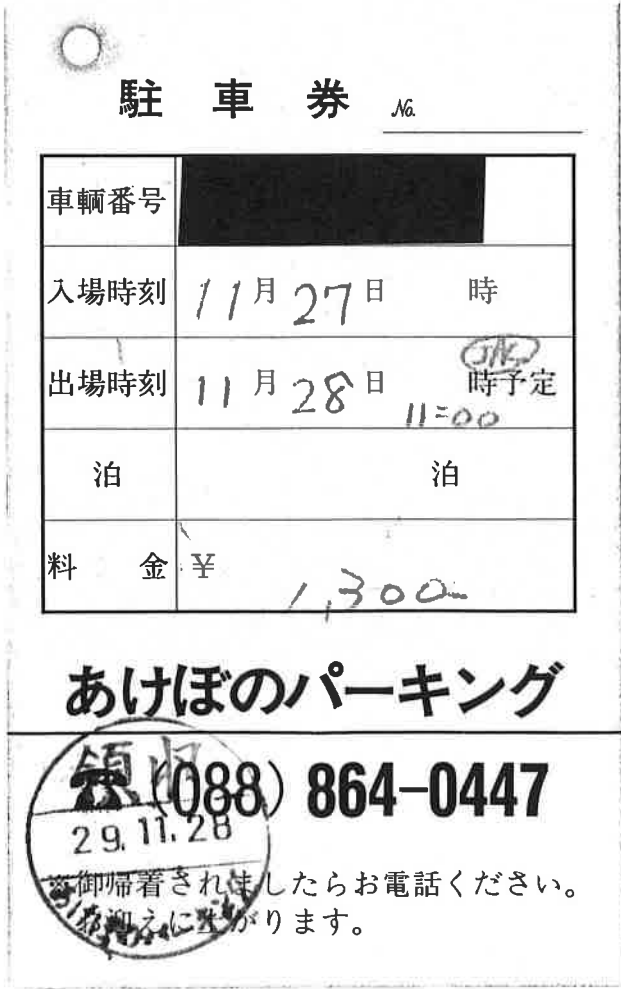 駐車券 No.
車輌番号
入場時刻 11月27日 時
出場時刻 11月28日 11:00 時予定 JAL
泊 泊
料金 ¥ 1,300
あけぼのパーキング
☎(088)864-0447
領収
29.11.28
※御帰着されましたらお電話ください。
お迎えに上がります。